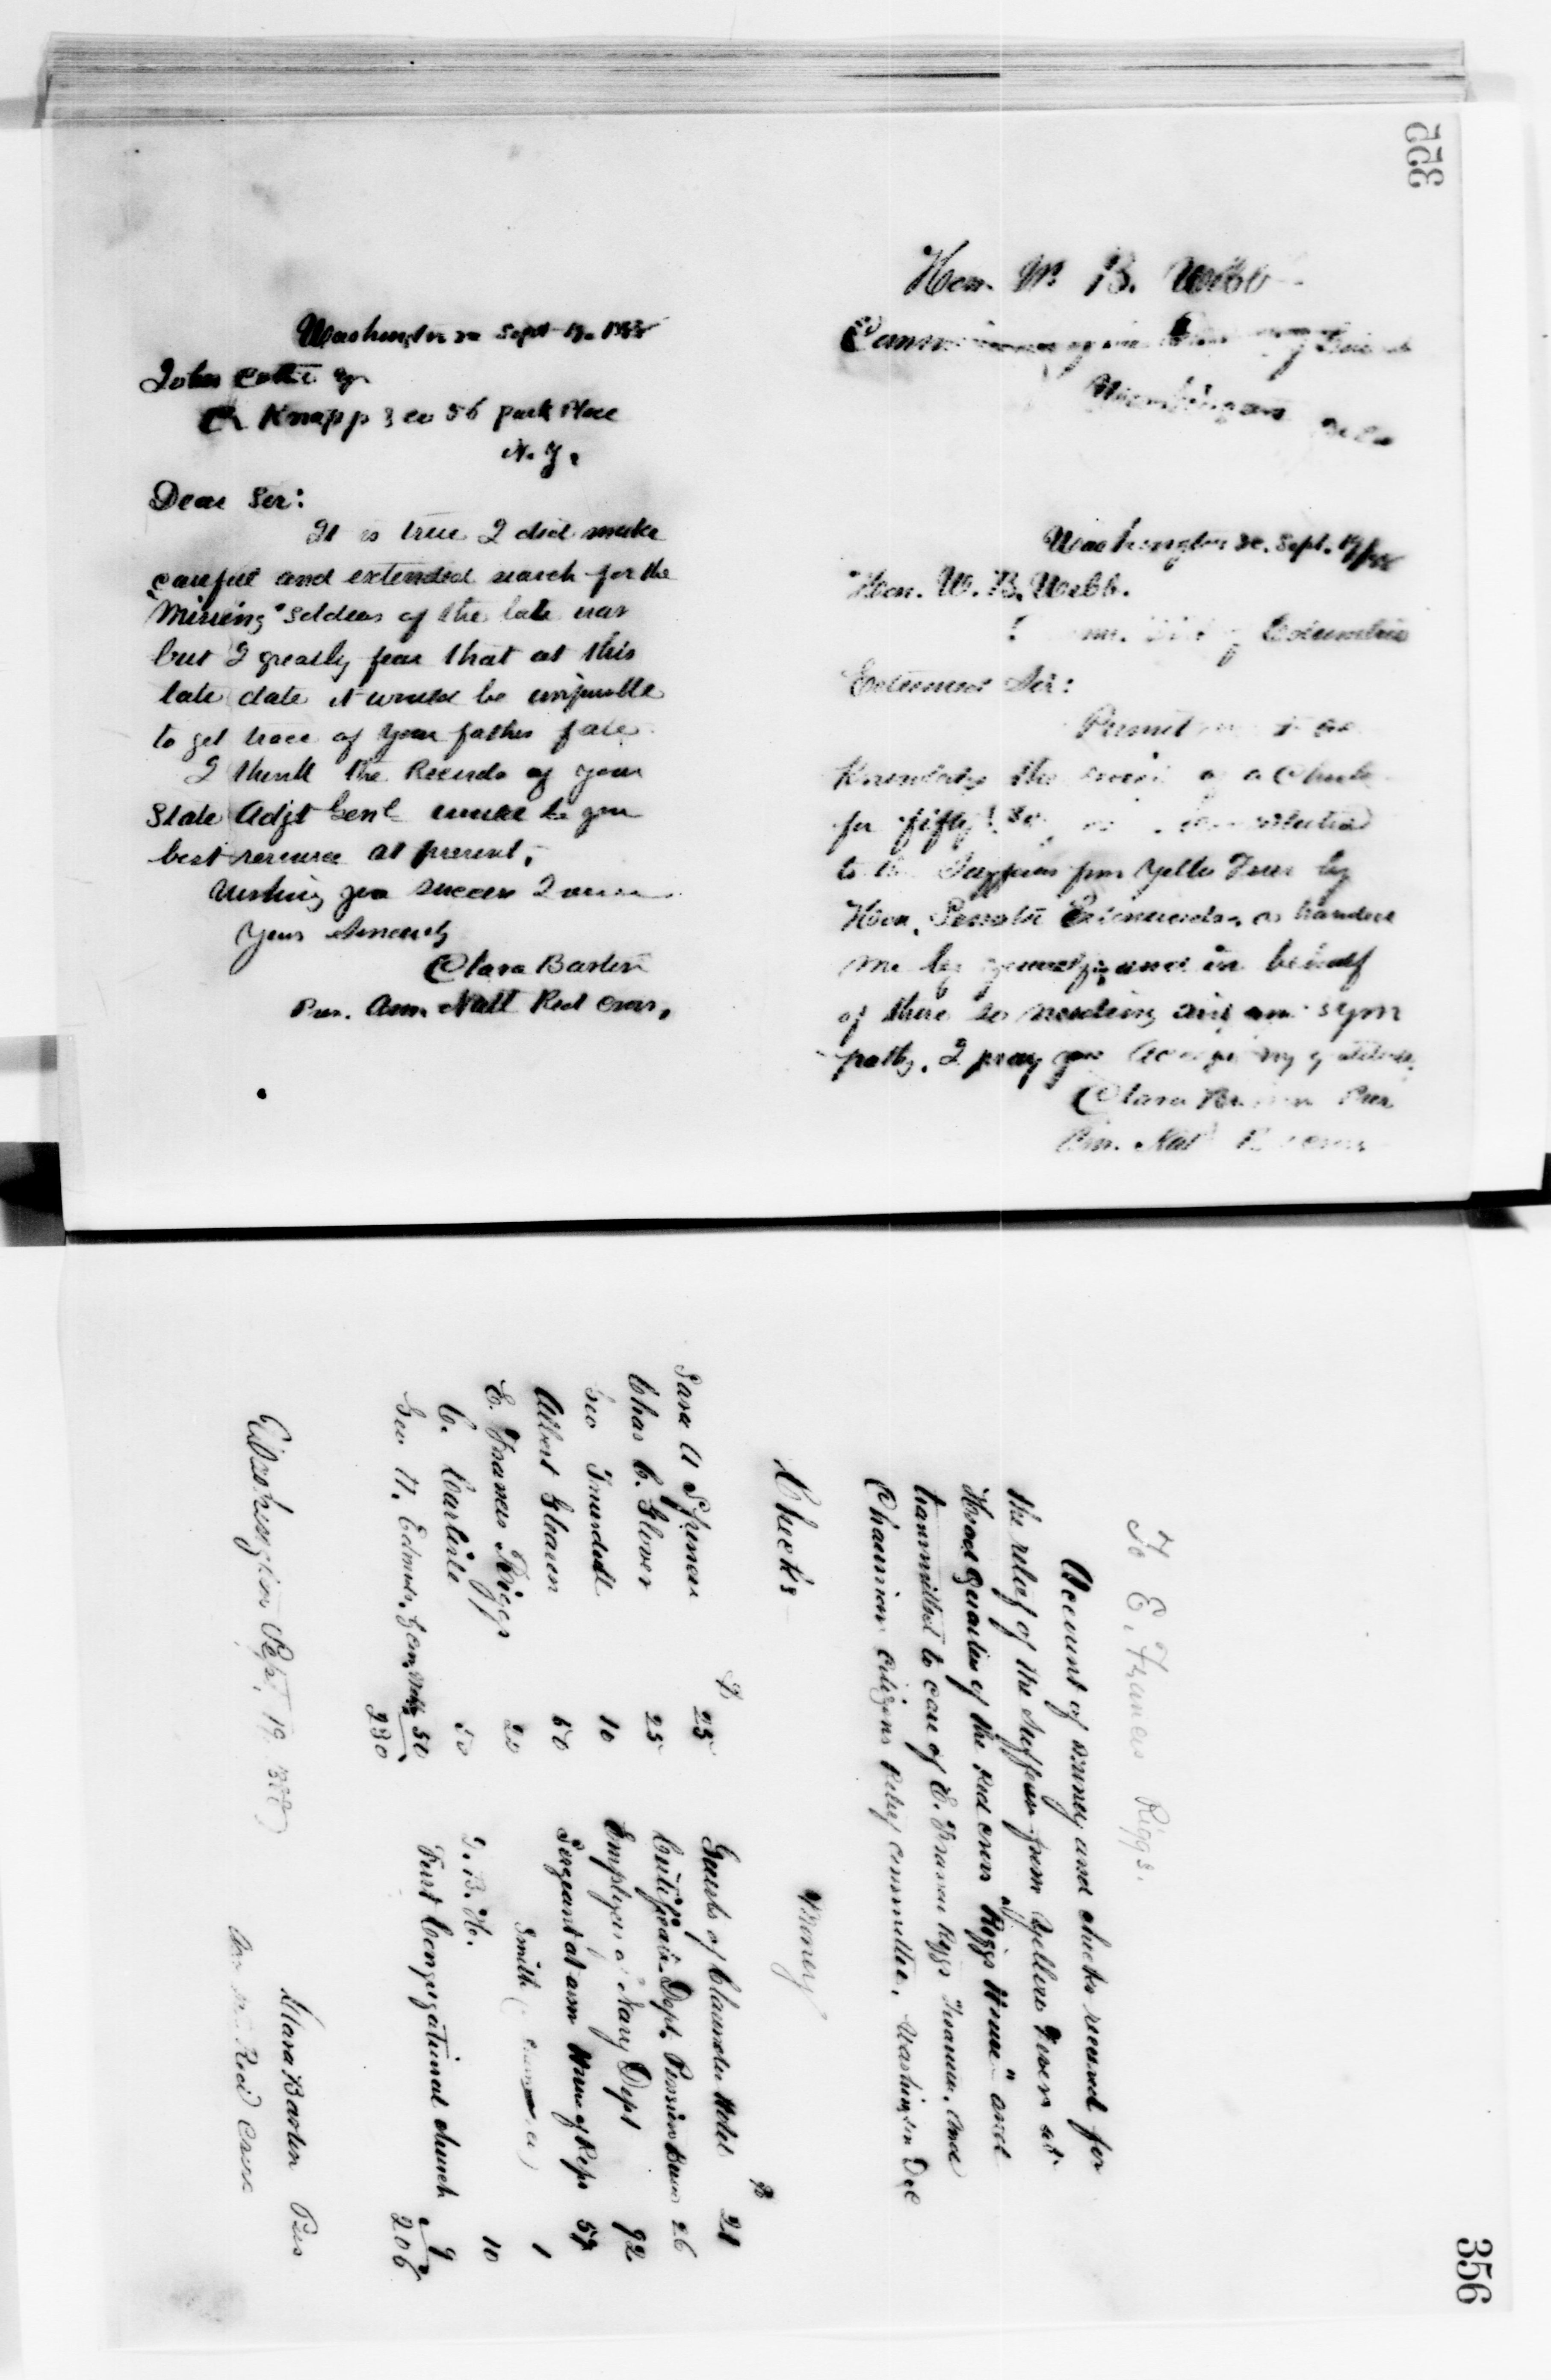 355
Washington Sept 19. 1888
John
Knapp & Co 56 Park Place
N. Y.
Dear Sir:
It is true I did make
careful and extended search for the
"Missing" Soldiers of the late war
but I greatly fear that at this
late date it would be impossible
to get trace of your fathers fate.
I think the Records of your
State Adjt Genl would be your
best resource at present,
Wishing you success I am
Yours Sincerely
Clara Barton
Pres. Am. Natl Red Cross,
Hon. W. B. Webb
Washington
Washington DC. Sept. 19/88
Hon. W. B. Webb.
Columbia
Esteemed Sir:
Permit
the a Check
for fifty
to the Sufferers from Yellow Fever by
Hon. Senator Edmunds, as handed
me by yourself; and in behalf
of those so needing aid and sym
pathy, I pray you accept my gratitude,
Clara Barton Pres
Am. Natl Red Cross
356
To E. Francis Riggs.
Account of money and checks received for
the relief of the sufferers from Yellow Fever at
Head Quarters of the Red Cross "Riggs House" and
transmitted to care of E. Francis Riggs Treasurer, and
Chairman Citizens Relief Committee, Washington D C
Checks
$
Sara A Spencer 25
Chas C. Glover 25
Geo 10
Albert 50
E. Francis Riggs 20
C. Carlisle 50
Geo F. Edmunds, 50
230
Money
$
Guests of Clarendon Hotel 21
Certificate Dept. Pension 26
Employes of Navy Dept 92
Sergeant at arms House of Reps 57
Smith 1
G. B. H. 10
First Congregational Church 9
206
Washington Sept. 19. 1888
Clara Barton Pres
Am Red Cross